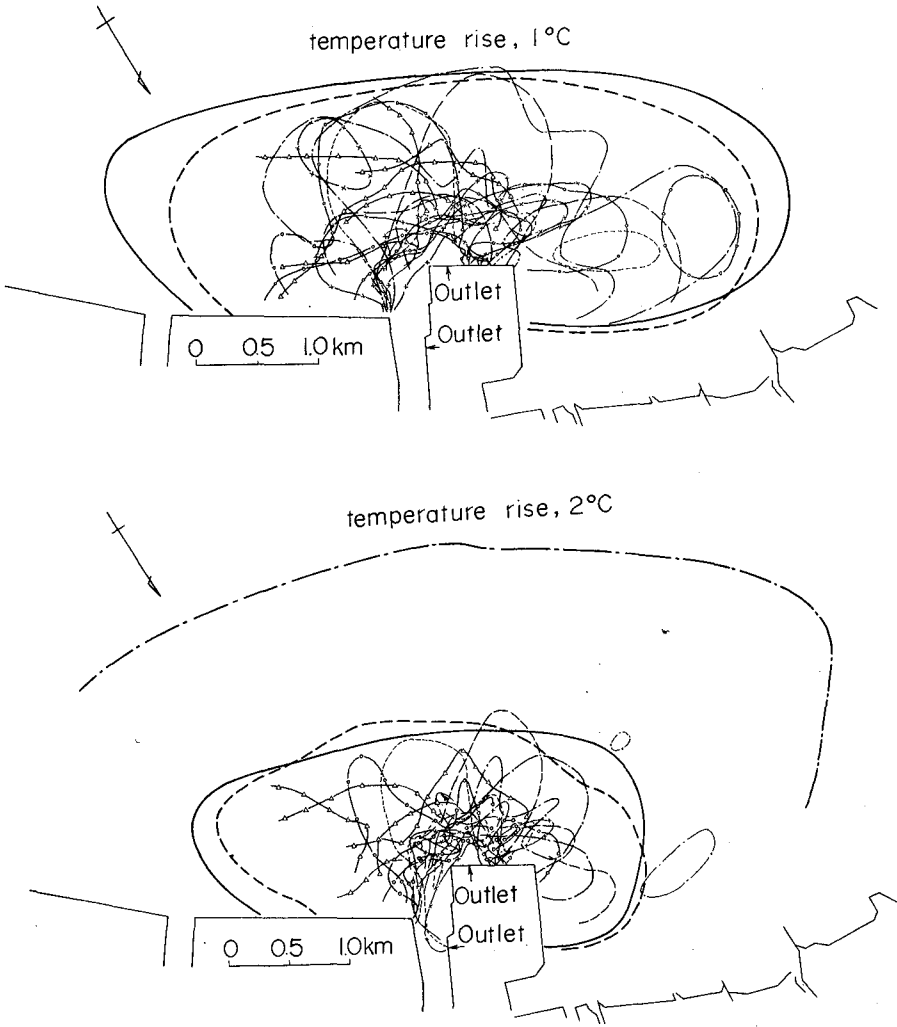 temperature rise, 1°C
Outlet
Outlet
0 0.5 1.0 km
temperature rise, 2°C
Outlet
Outlet
0 0.5 1.0 km